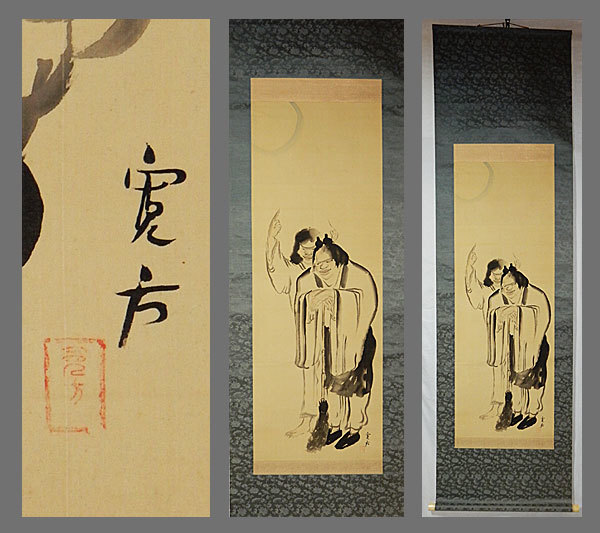 寛方
寛方